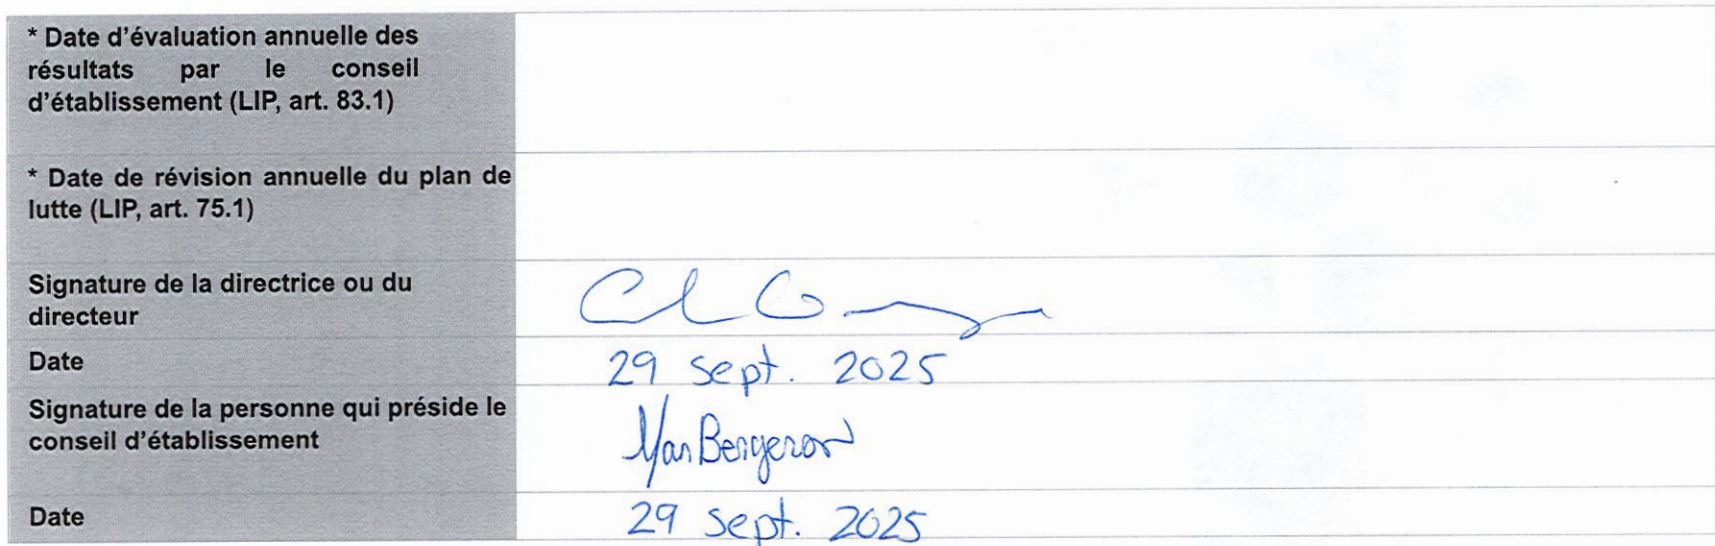 * Date d'évaluation annuelle des
résultats par le conseil
d'établissement (LIP, art. 83.1)
* Date de révision annuelle du plan de
lutte (LIP, art. 75.1)
Signature de la directrice ou du
directeur
Date
29 sept. 2025
Signature de la personne qui préside le
conseil d'établissement
Bergeron
Date
29 sept. 2025